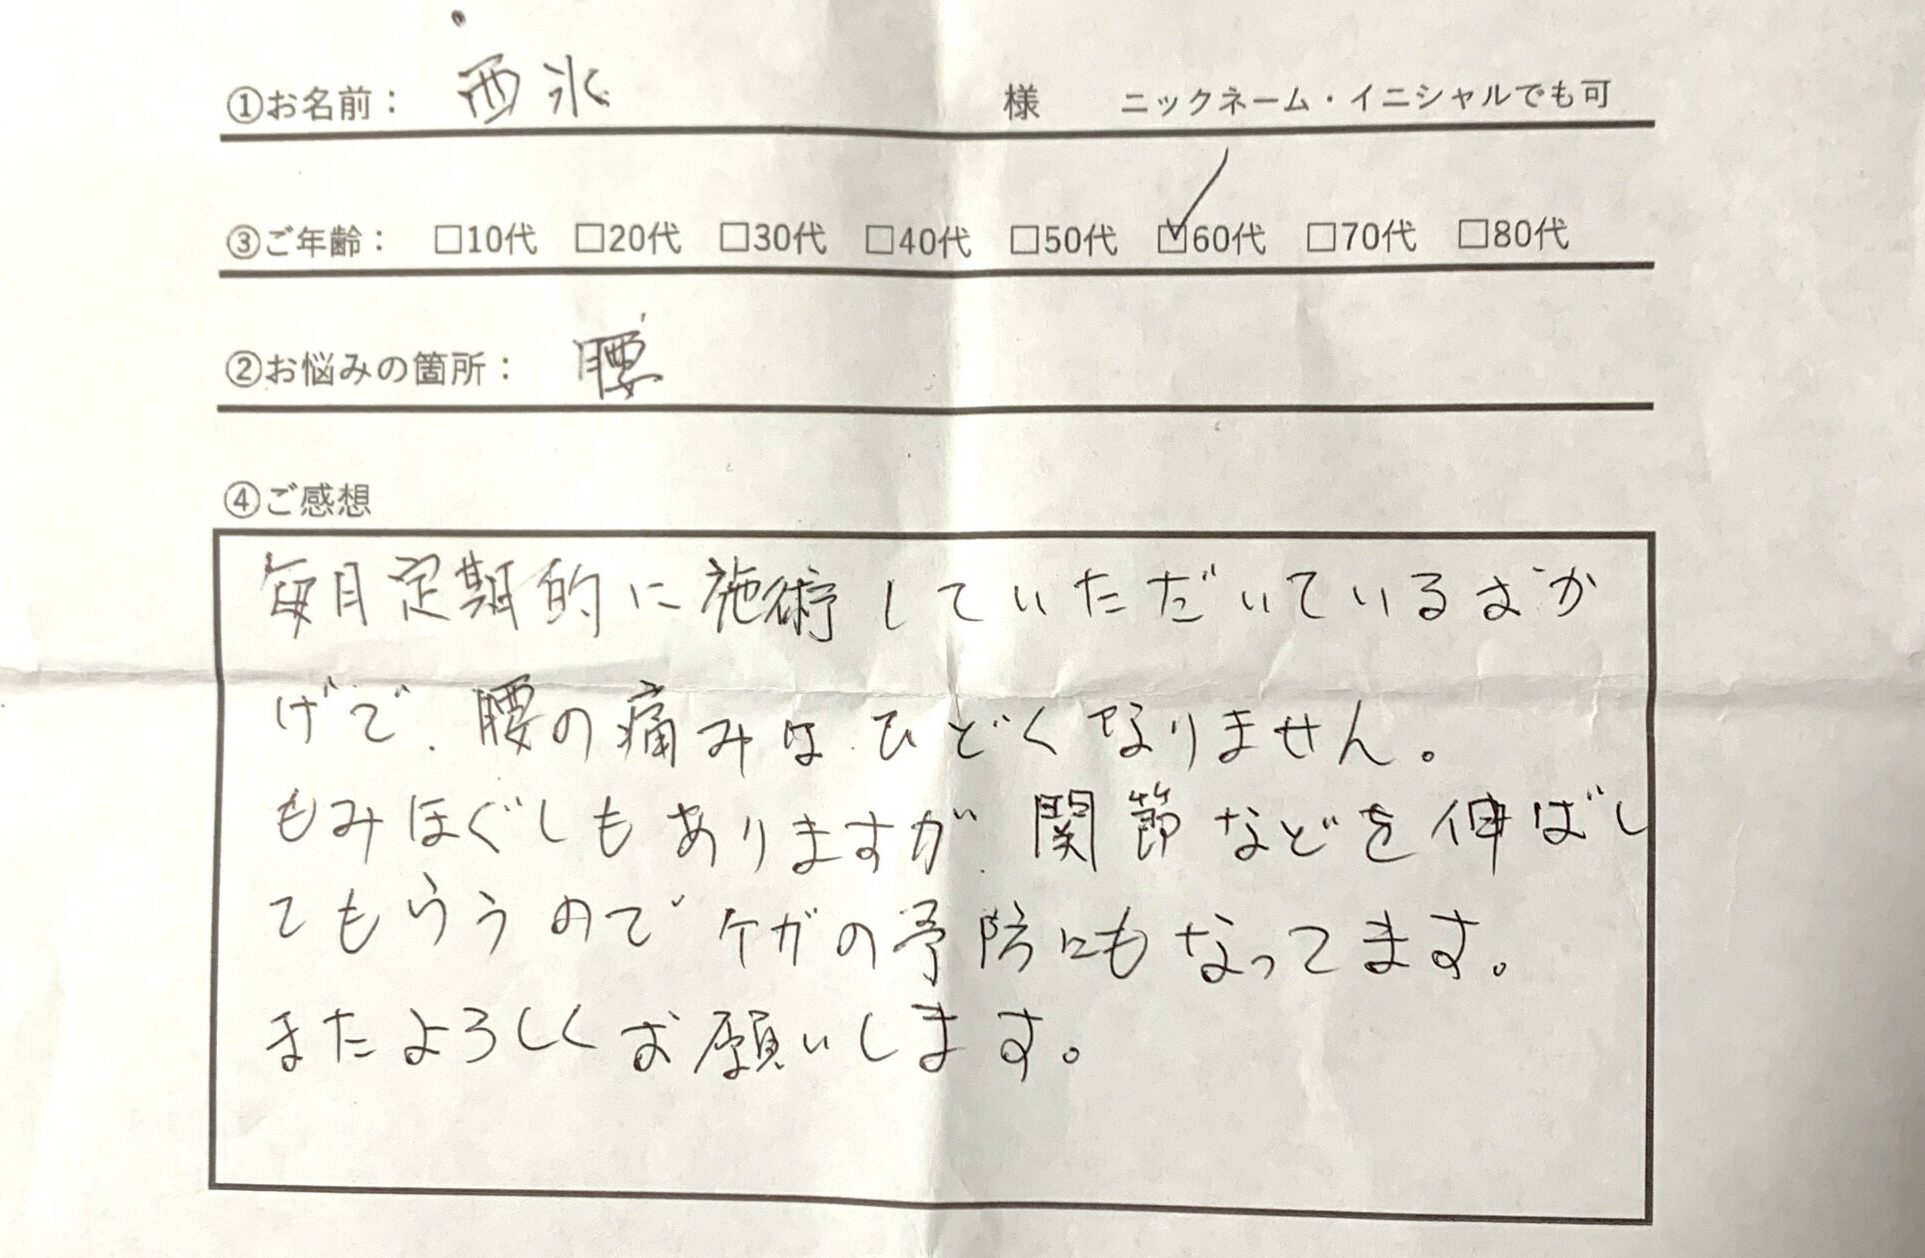 ①お名前： 西氷 様 ニックネーム・イニシャルでも可
③ご年齢： □10代 □20代 □30代 □40代 □50代 ☑60代 □70代 □80代
②お悩みの箇所： 腰
④ご感想
毎月定期的に施術していただいているおか
げで、腰の痛みはひどくなりません。
もみほぐしもありますが、関節などを伸ばし
てもらうのでケガの予防にもなってます。
またよろしくお願いします。